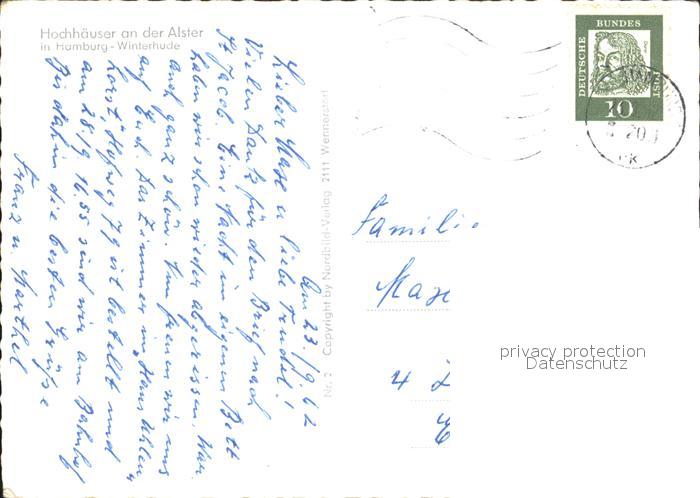 Hochhäuser an der Alster
in Hamburg - Winterhude
Am 23./9. 62
Lieber Maxe u. liebe Trudel!
Vielen Dank für den Brief nach
St. Jacob. Eine Nacht im eigenen Bett
haben wir schon wieder abgerissen. War
auch ganz schön. Nun freuen wir uns
auf Euch. Das Zimmer im "Haus Uhlen-
horst" Hofweg 79 ist bestellt und
am 28./9. 16.55 sind wir am Bahnhof
Bis dahin die besten Grüße
Franz u. Marthel
Nr. 2 Copyright by Nordbild-Verlag 2111 Wennerstorf
DEUTSCHE
BUNDES
POST
Dürer
10
20
Familie
Maxe
4
privacy protection
Datenschutz